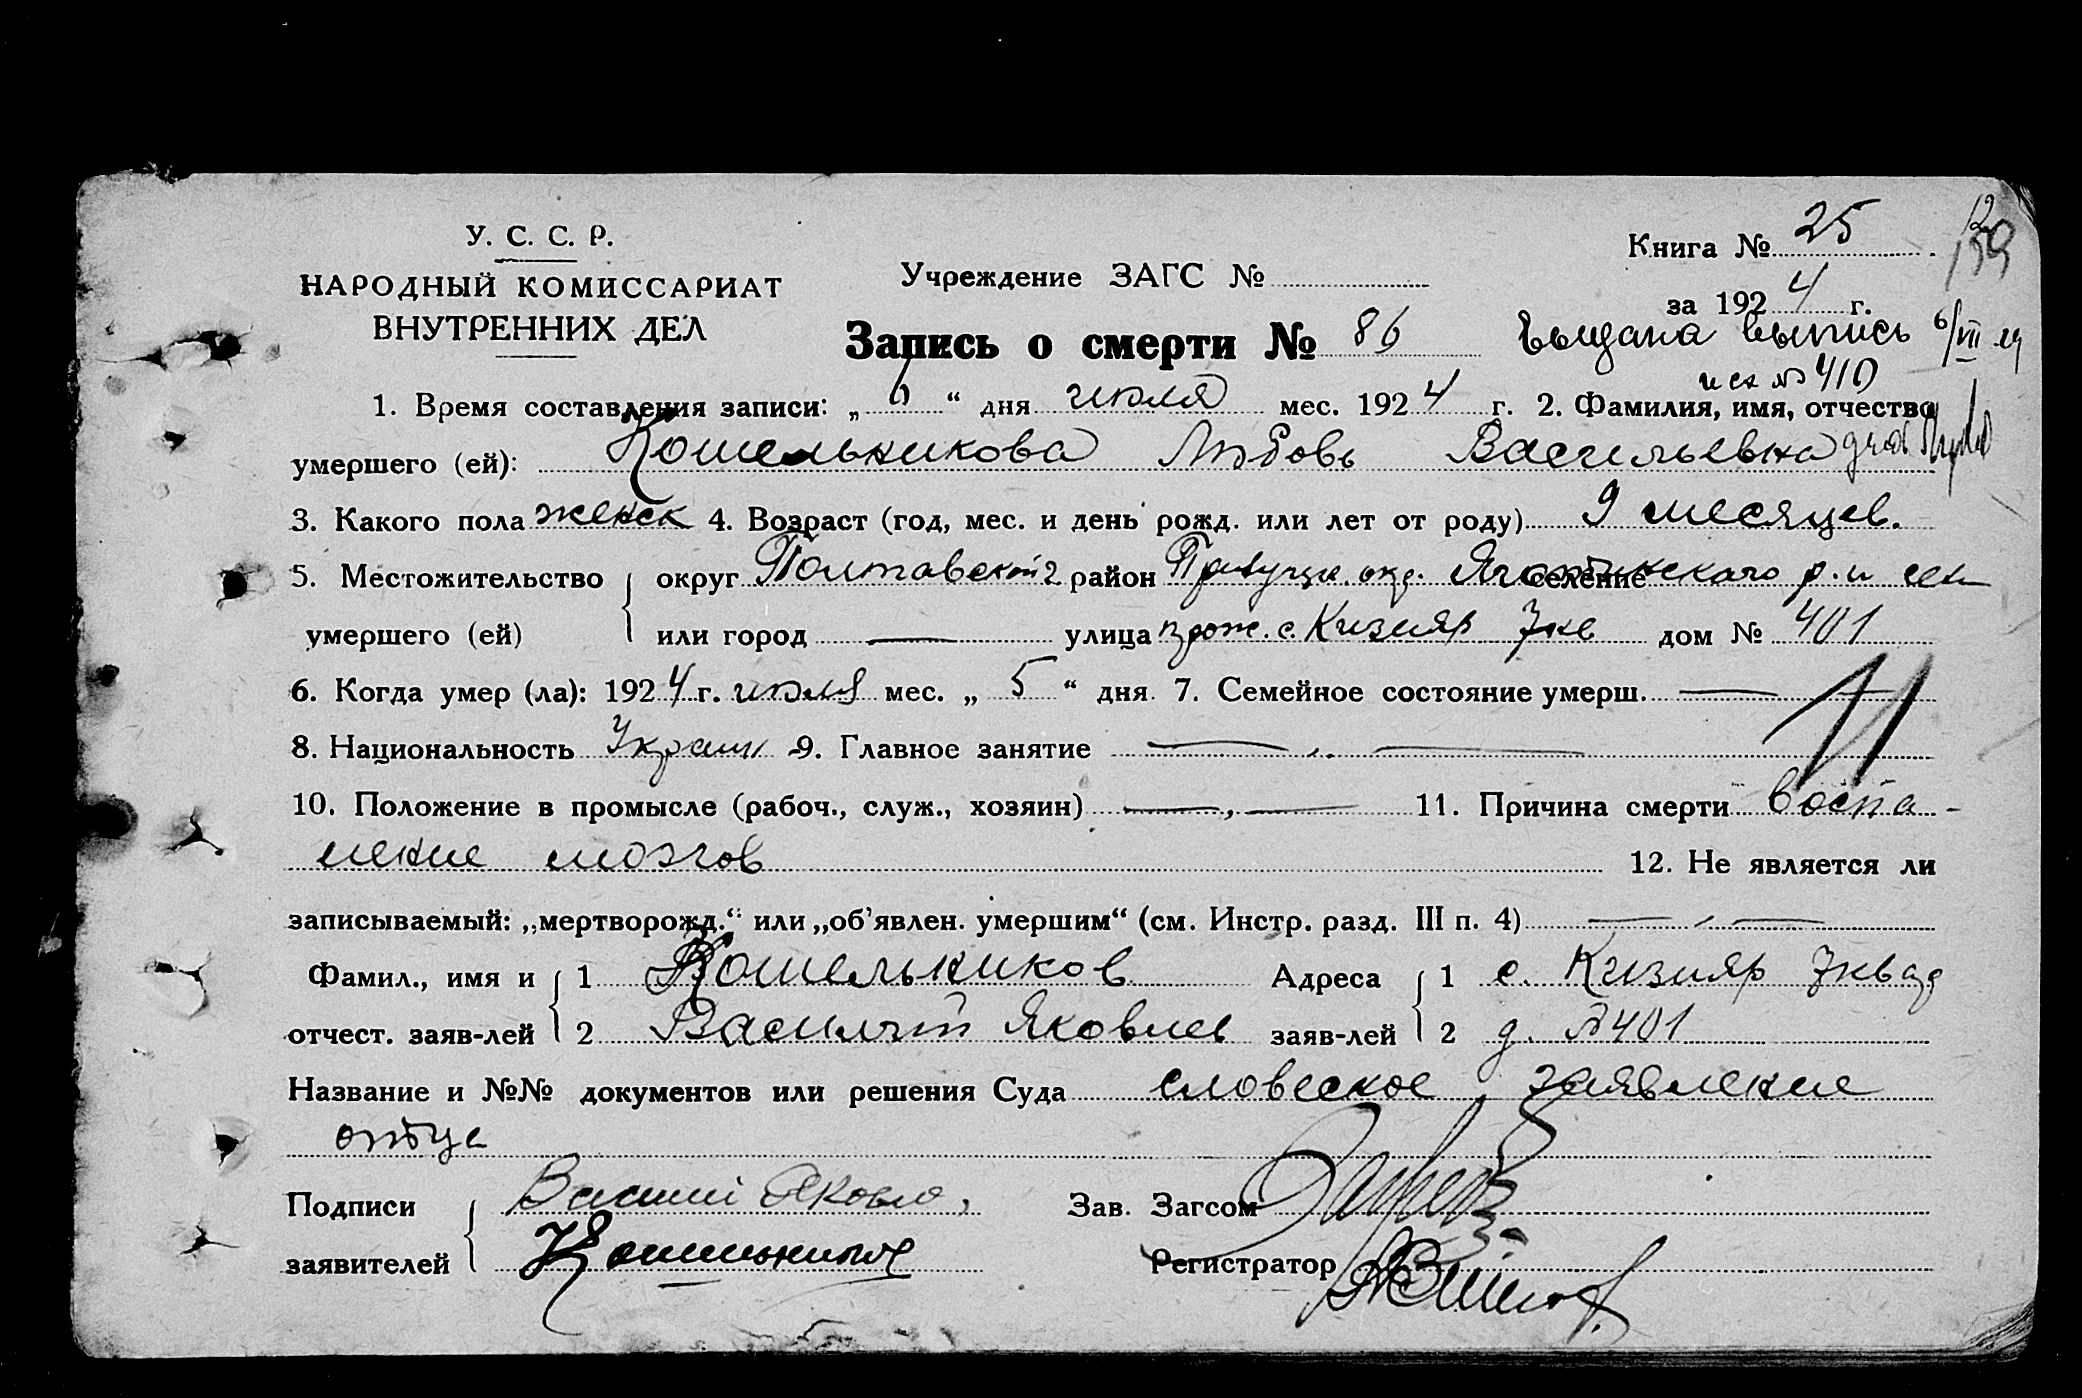 У. С. С. Р.
НАРОДНЫЙ КОМИССАРИАТ
ВНУТРЕННИХ ДЕЛ
Учреждение ЗАГС №
Книга № 25
139
за 1924 г.
Запись о смерти № 86
Выдана выпись 6/VIII 24
исх № 410
1. Время составления записи: „6“ дня июля мес. 1924 г. 2. Фамилия, имя, отчество
умершего (ей): Кошельникова Любовь Васильевна
3. Какого пола женск 4. Возраст (год, мес. и день рожд. или лет от роду) 9 месяцев.
5. Местожительство округ Полтавской г район Прилуцк. окр. Яготинского р. и селение
умершего (ей) или город — улица прож. с. Кизияр 7кв дом № 401
6. Когда умер (ла): 1924 г. июля мес. „5“ дня 7. Семейное состояние умерш. —
8. Национальность Украин 9. Главное занятие —
10. Положение в промысле (рабоч., служ., хозяин) — 11. Причина смерти воспа-
ление мозгов 12. Не является ли
записываемый: „мертворожд.“ или „об’явлен. умершим“ (см. Инстр. разд. III п. 4) —
Фамил., имя и 1 Кошельников Адреса 1 с. Кизияр 7квад
отчест. заяв-лей 2 Василий Яковлев заяв-лей 2 д. №401
Название и №№ документов или решения Суда словесное заявление
отца
Подписи Василий Яковл. Зав. Загсом
заявителей Кошельников Регистратор